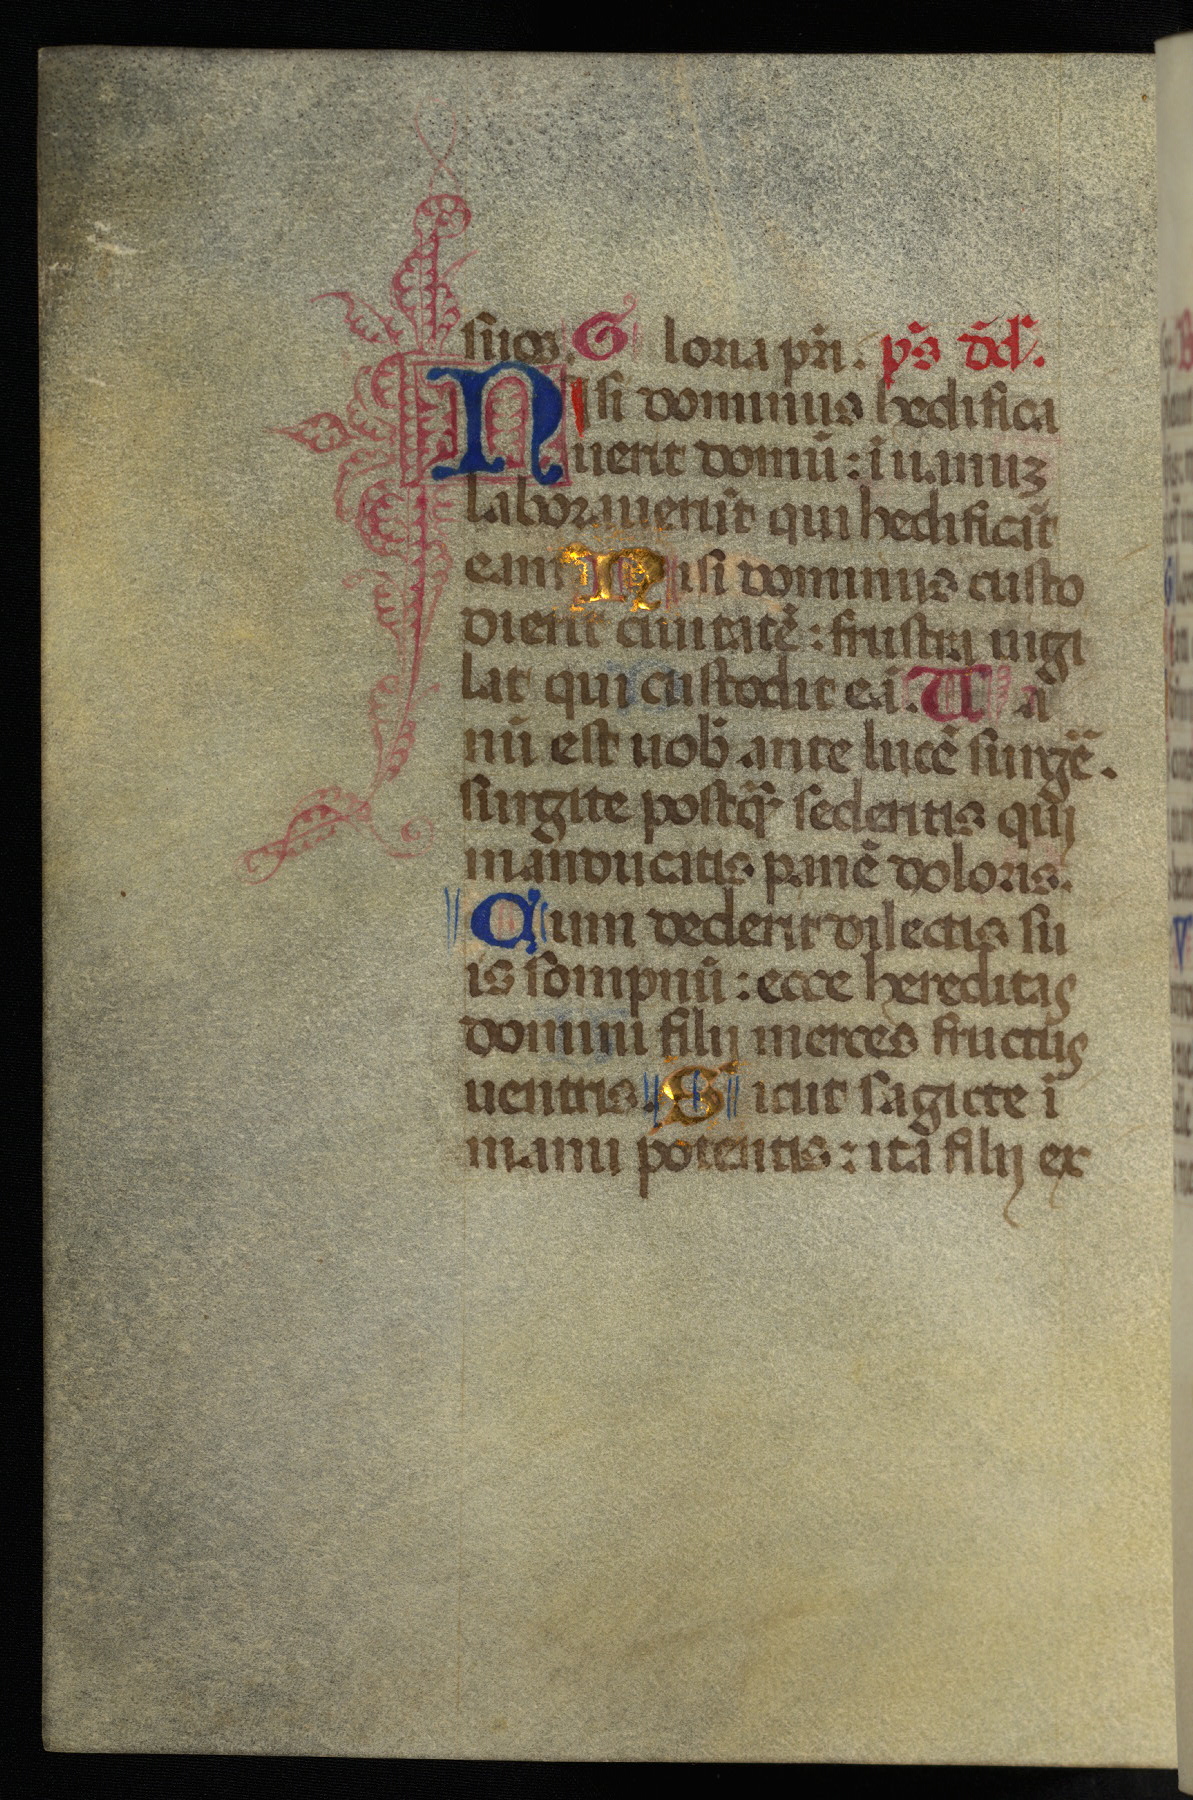 suos. Gloria pr̄i. ps̄ d̄d̄.
Nisi dominus hedifica
uerit domū: ī uanuʒ
laborauerūt qui hedificāt
eam Nisi dominus custo
dierit ciuitatē: frustra uigi
lat qui custodit eā. Uā
nū est uob̄ ante lucē surgē̄.
surgite postq̄ sederitis qui
manducatis panē doloris.
Cum dederit dilectis su
is sompnū: ecce hereditas
domini filij merces fructus
uentris. Sicut sagicte ī
manu potentis: ita filij ex